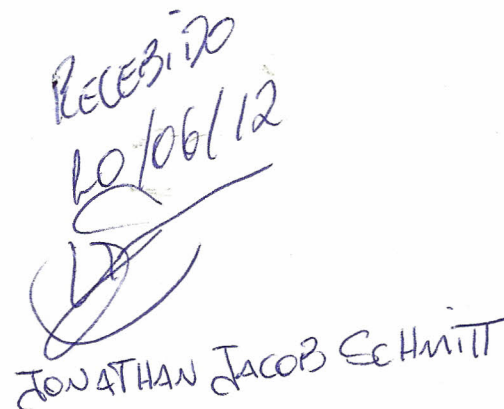 RECEBIDO
20/06/12
JONATHAN JACOB SCHMITT